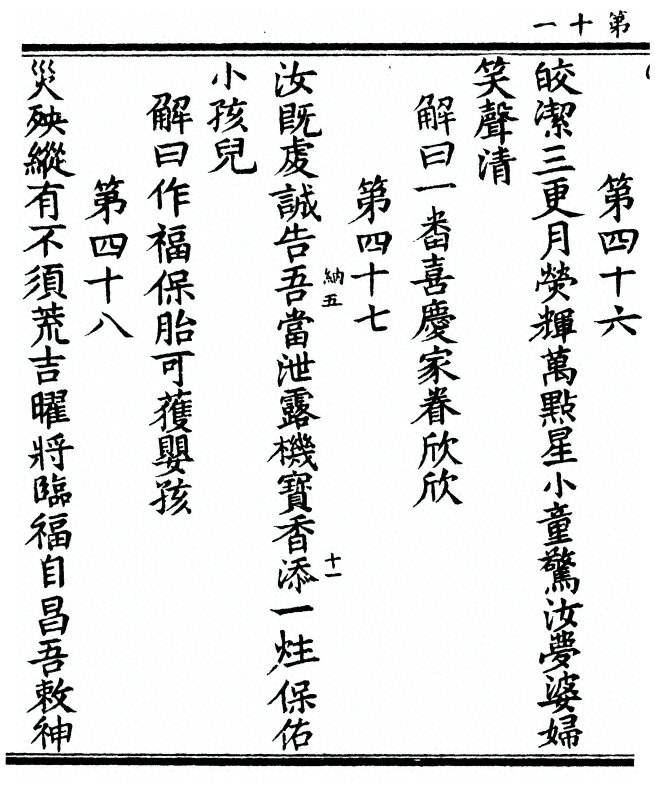 第十一
第四十六
皎潔三更月熒輝萬點星小童驚汝夢婆婦
笑聲清
解曰一畨喜慶家眷欣欣
第四十七
汝既虔誠告吾當泄露機寶香添一炷保佑
納五
十一
小孩兒
解曰作福保胎可穫嬰孩
第四十八
災殃縱有不須荒吉曜將臨福自昌吾敕神